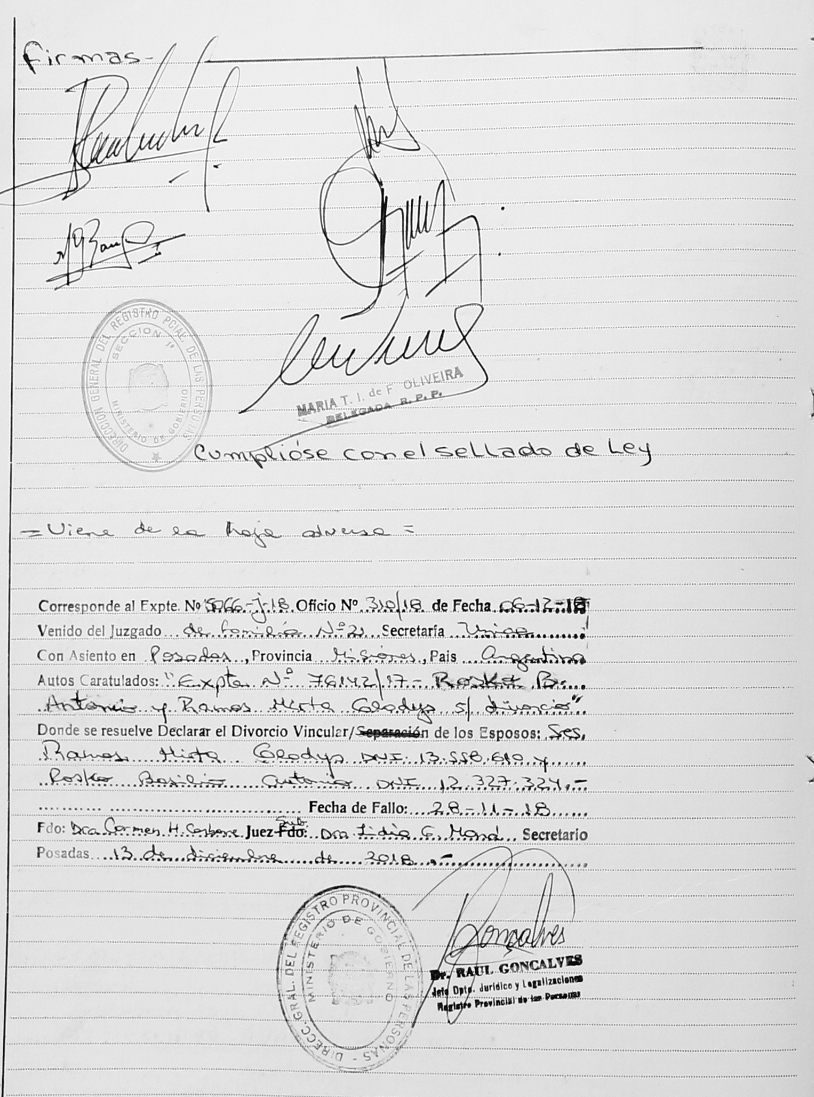 Firmas-
DIRECCION GENERAL DEL REGISTRO PCIAL. DE LAS PERSONAS
SECCION 1ª
MINISTERIO DE GOBIERNO
MARIA T. I. de F. OLIVEIRA
DELEGADA R. P. P.
Cumplióse con el sellado de Ley
=Viene de la hoja adversa=
Corresponde al Expte. Nº 5066-J-18 Oficio Nº 310/18 de Fecha 06-12-18
Venido del Juzgado de Familia Nº 2 Secretaría Unica
Con Asiento en Posadas, Provincia Misiones, País Argentina
Autos Caratulados: "Expte Nº 76142/17- Rosko B.
Antonio y Ramos Mirta Gladys s/ divorcio"
Donde se resuelve Declarar el Divorcio Vincular/Separación de los Esposos: Ses,
Ramos Mirta Gladys DNI 13.558.619 y
Rosko Basilio Antonio DNI 12.327.324.-
Fecha de Fallo: 28-11-18
Fdo: Dra Carmen H. Carbone Juez Sub Fdo: Dra Lidia G. Secretario
Posadas 13 de diciembre de 2018.-
DIRECC. GRAL. DEL REGISTRO PROVINCIAL DE LAS PERSONAS
MINISTERIO DE GOBIERNO
Gonçalves
Dr. RAUL GONCALVES
Jefe Dpto. Jurídico y Legalizaciones
Registro Provincial de las Personas